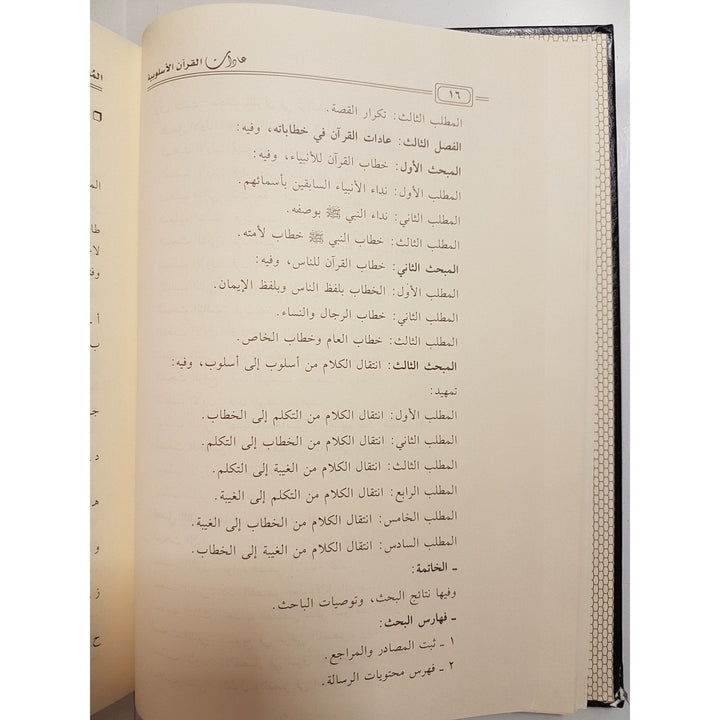 عادات القرآن الأسلوبية
١٦
المطلب الثالث: تكرار القصة.
الفصل الثالث: عادات القرآن في خطاباته، وفيه:
المبحث الأول: خطاب القرآن للأنبياء، وفيه:
المطلب الأول: نداء الأنبياء السابقين بأسمائهم.
المطلب الثاني: نداء النبي ﷺ بوصفه.
المطلب الثالث: خطاب النبي ﷺ خطاب لأمته.
المبحث الثاني: خطاب القرآن للناس، وفيه:
المطلب الأول: الخطاب بلفظ الناس وبلفظ الإيمان.
المطلب الثاني: خطاب الرجال والنساء.
المطلب الثالث: خطاب العام وخطاب الخاص.
المبحث الثالث: انتقال الكلام من أسلوب إلى أسلوب، وفيه:
تمهيد:
المطلب الأول: انتقال الكلام من التكلم إلى الخطاب.
المطلب الثاني: انتقال الكلام من الخطاب إلى التكلم.
المطلب الثالث: انتقال الكلام من الغيبة إلى التكلم.
المطلب الرابع: انتقال الكلام من التكلم إلى الغيبة.
المطلب الخامس: انتقال الكلام من الخطاب إلى الغيبة.
المطلب السادس: انتقال الكلام من الغيبة إلى الخطاب.
ـ الخاتمة:
وفيها نتائج البحث، وتوصيات الباحث.
ـ فهارس البحث:
١ ـ ثبت المصادر والمراجع.
٢ ـ فهرس محتويات الرسالة.
أ ـ
ب
جـ
د ـ
هـ
و
ز
ح